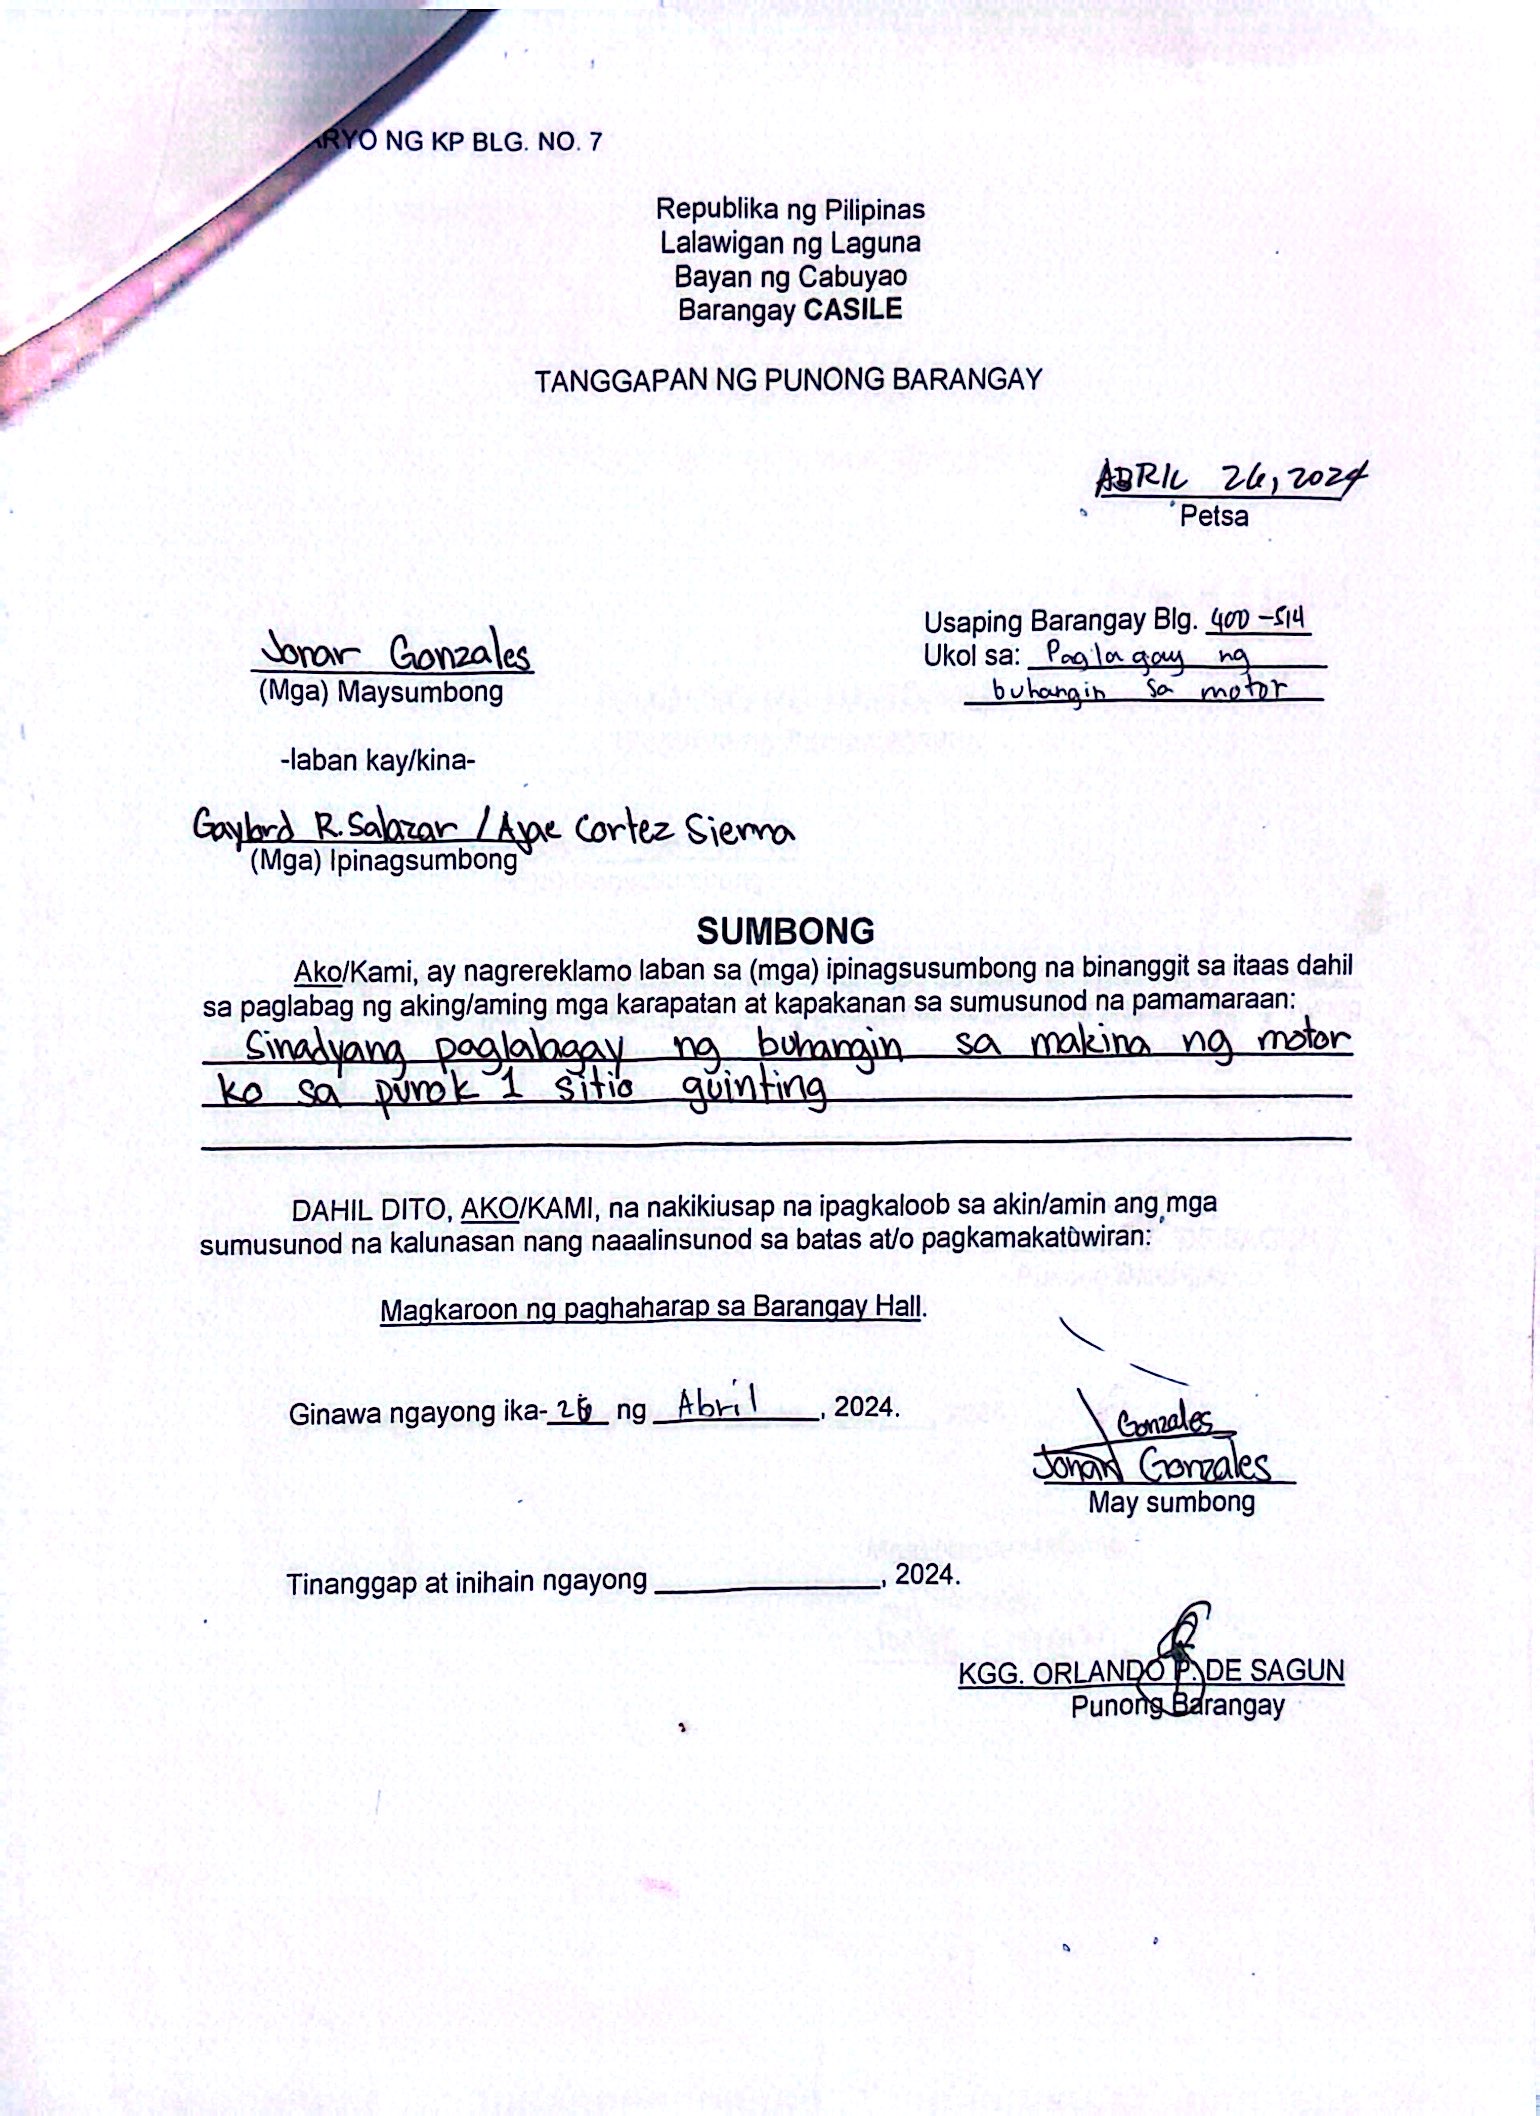 ARYO NG KP BLG. NO. 7
Republika ng Pilipinas
Lalawigan ng Laguna
Bayan ng Cabuyao
Barangay CASILE
TANGGAPAN NG PUNONG BARANGAY
ABRIL 26, 2024
Petsa
Usaping Barangay Blg. 400-514
Jonar Gonzales
Ukol sa: Paglagay ng
(Mga) Maysumbong
buhangin sa motor
-laban kay/kina-
Gaylord R. Salazar / Ajae Cortez Sierra
(Mga) Ipinagsumbong
SUMBONG
Ako/Kami, ay nagrereklamo laban sa (mga) ipinagsusumbong na binanggit sa itaas dahil
sa paglabag ng aking/aming mga karapatan at kapakanan sa sumusunod na pamamaraan:
Sinadyang paglalagay ng buhangin sa makina ng motor
ko sa purok 1 sitio guinting
DAHIL DITO, AKO/KAMI, na nakikiusap na ipagkaloob sa akin/amin ang mga
sumusunod na kalunasan nang naaalinsunod sa batas at/o pagkamakatuwiran:
Magkaroon ng paghaharap sa Barangay Hall.
Ginawa ngayong ika-26 ng Abril, 2024.
Gonzales
Jonar Gonzales
May sumbong
Tinanggap at inihain ngayong ________________, 2024.
KGG. ORLANDO P. DE SAGUN
Punong Barangay